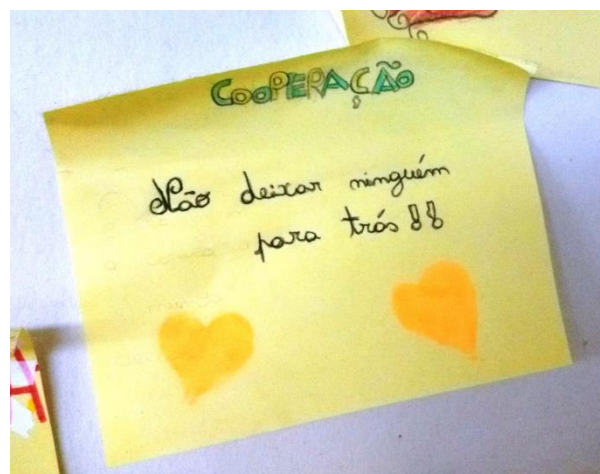 COOPERAÇÃO
Não deixar ninguém
para trás!!